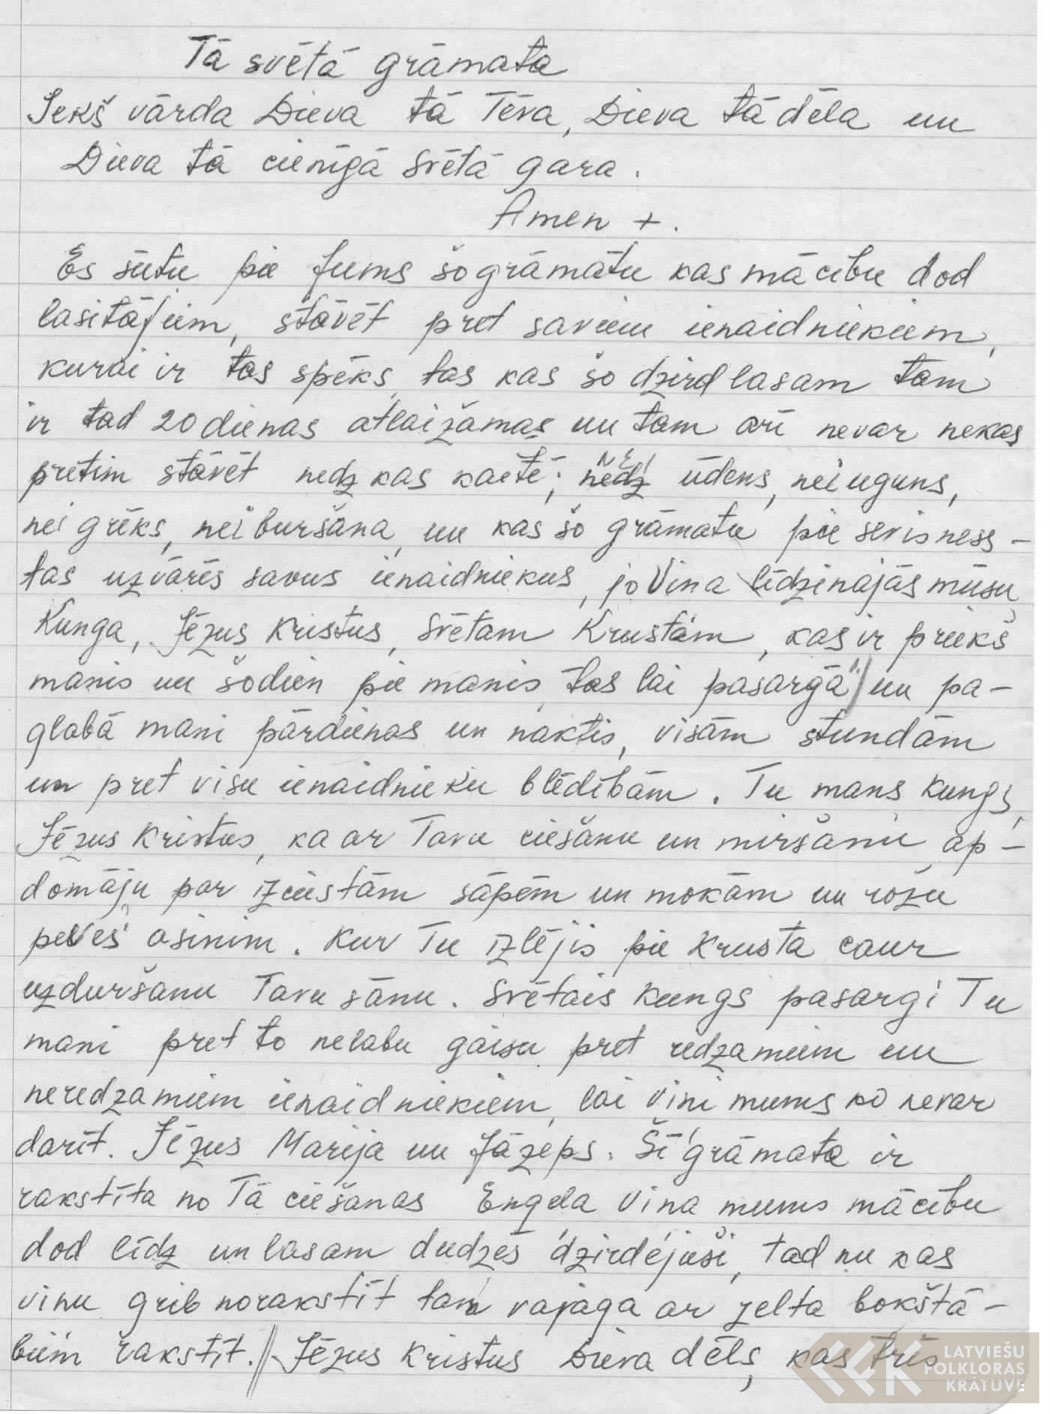 Tā svētā grāmata
Iekš vārda Dieva tā Tēva, Dieva tā dēla un
Dieva tā cienīgā svētā gara.
Amen +.
Es sūtu pie jums šo grāmatu kas mācību dod
lasitājiem, stāvēt pret saviem ienaidniekiem,
kurai ir tas spēks, tas kas šo dzird lasam tam
ir tad 20 dienas atlaižamas un tam arī nevar nekas
pretim stāvēt nedz kas kaitē; nei ūdens, nei uguns,
nei grēks, nei buršana, un kas šo grāmatu pie sevis ness-
tas uzvarēs savus ienaidniekus, jo Viņa līdzinajās mūsu
Kunga, Jēzus Kristus, Svētam Krustam, kas ir priekš
manis un šodien pie manis, tas lai pasargā un pa-
glabā mani pārdienas un naktis, visām stundām
un pret visu ienaidnieku blēdībām. Tu mans Kungs,
Jēzus Kristus, ka ar Tavu ciešanu un miršanu ap-
domāju par izciestām sāpēm un mokām un rožu
pelēs asinim. Kur Tu izlējis pie Krusta caur
uzduršanu Tavu sānu. Svētais Kungs pasargi Tu
mani pret to nelabu gaisu pret redzamiem un
neredzamiem ienaidniekiem, lai viņi mums ko nevar
darīt. Jēzus Marija un Jāzeps. Šī grāmata ir
rakstīta no Tā ciešanas Eņģeļa Viņa mums mācību
dod līdz un lasam dudzēs dzirdējuši, tad nu kas
viņu grib norakstīt tam vajaga ar zelta bokštā-
biem rakstīt. // Jēzus Kristus Dieva dēls, kas trīs
LATVIEŠU
FOLKLORAS
KRĀTUVE